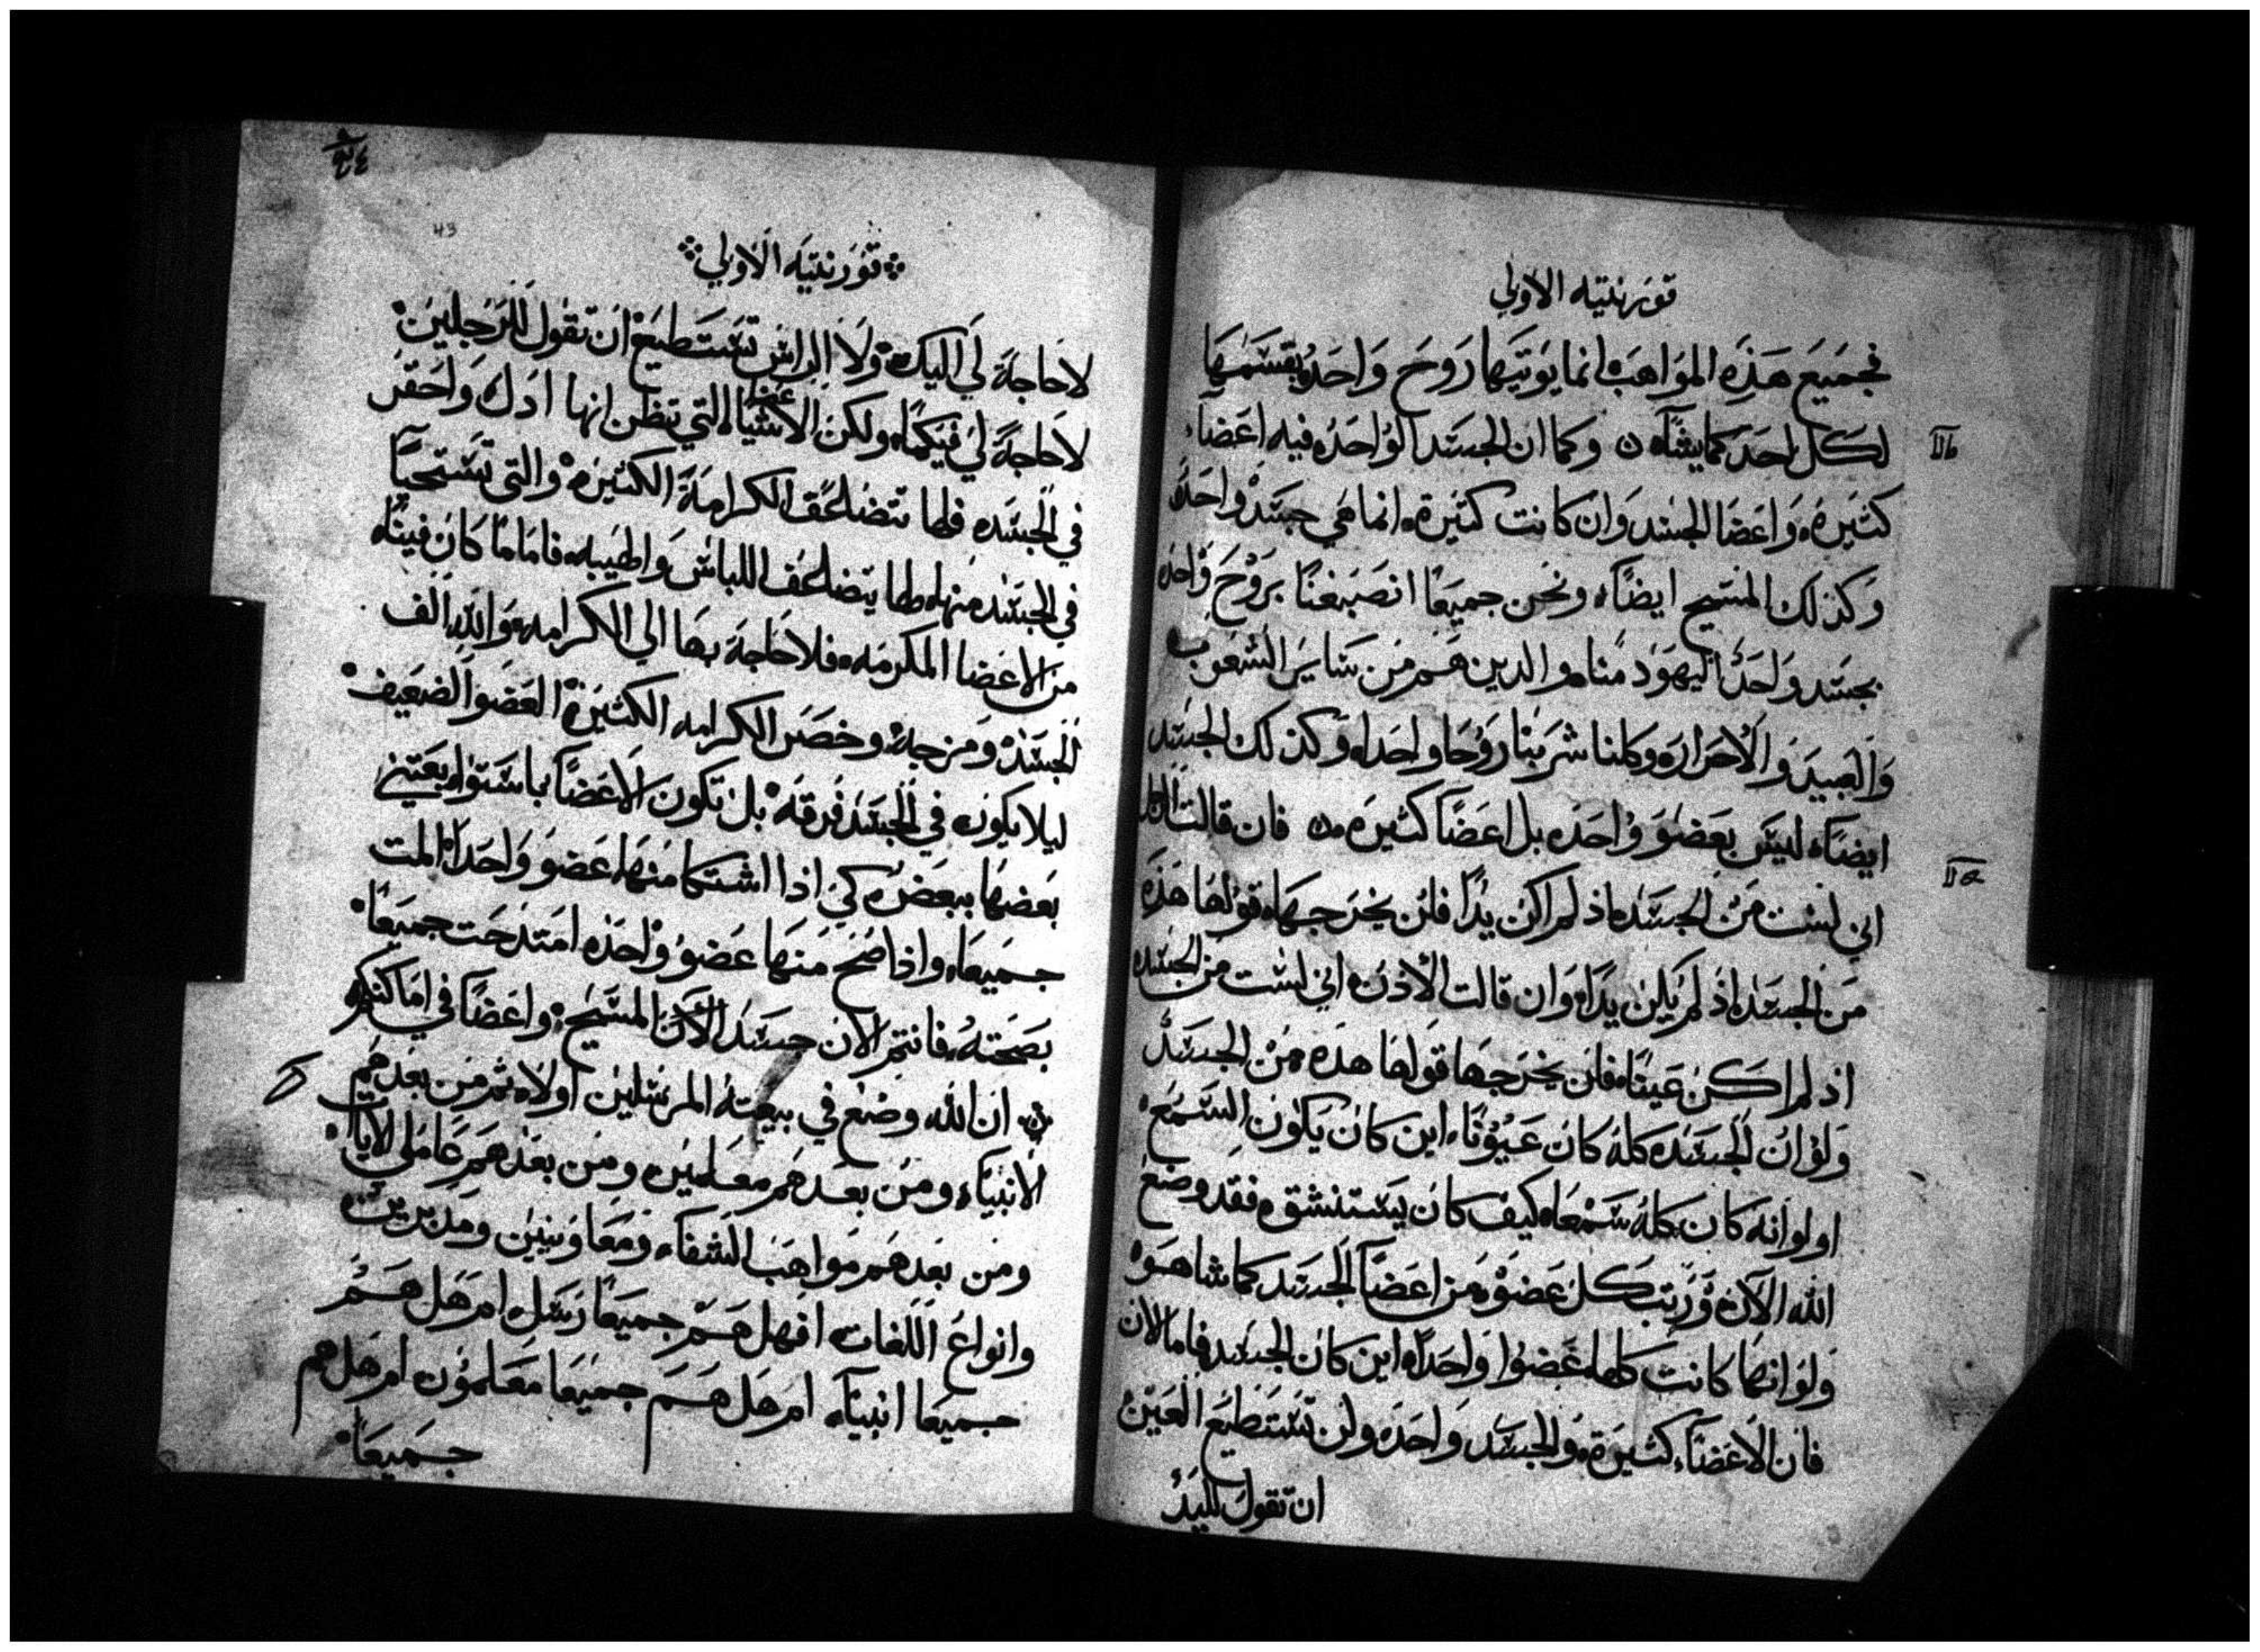 قورنتيه الاولي
فجميع هذه المواهب انما يوتيها روح واحد يقسمها
لكل احد كما يشآ ن وكما ان الجسد الواحد فيه اعضآء
كثيرة واعضا الجسد وان كانت كثيرة انما هي جسد واحد
وكذلك المسيح ايضاً ونحن جميعاً انصبغنا بروح واحد
بجسد واحد اليهود منا والدين هم من سايرالشعوب
والعبيد والاحرار وكلنا شربنا روحا واحدا وكذلك الجسد
ايضاً ليس بعضو واحد بل اعضاً كثيرة فان قالت الرجل
اني لست من الجسد اذ لم اكن يداً فلن يخرجها قولها هذه
من الجسد اذ لم يكن يداً وان قالت الاذن اني لست من الجسد
اذ لم اكن عيناً فلن يخرجها قولها هذه من الجسد
ولوان الجسد كله كان عيوناً اين كان يكون السمع
اولوانه كان كله سمعا كيف كان يستنشق فقد وضع
الله الآن ورتب كل عضو من اعضآ الجسد كما شا هو
ولوانها كانت كلها عضوا واحداً اين كان الجسد فاما الان
فان الاعضآء كثيرة والجسد واحد ولن تستطيع العين
ان تقول لليد
IIb
IIa
43
قورنتيه الاولي
لاحاجة لي اليك ولا الراس تستطيع ان تقول للرجلين
لاحاجة لي فيكما ولكن الاشيا التي تظن انها ادل واحقر
اعضا
في الجسد فلها تتضاعف الكرامة الكثيرة والتي تستحيآ
في الجسد منها لها يتضاعف اللباس واطيبه فاما ما كان فينا
من الاعضا المكرمه فلاحاجة بها الي الكرامه والله الف
الجسد ومزجه وخصر الكرامه الكثيرة العضو الضعيف
ليلا يكون في الجسد فرقه بل تكون الاعضآ باستوا يعتني
بعضها ببعض كي اذا اشتكا منها عضو واحداً المت
جميعا واذا صح منها عضو واحد امتدحت جميعاً
بصحته فانتم الان جسد الان المسيح واعضآ في اماكنكم
ان الله وضع في بيعته المرسلين اولا ثم من بعدهم
الانبيآء ومن بعدهم معلمين ومن بعدهم عاملي الايات
ومن بعدهم مواهب الشفآء ومعاونيين ومدبرين
وانواع اللغات افهل هم جميعاً رسل ام هل هم
جميعا انبيآء ام هل هم جميعا معلمون ام هل هم
جميعاً